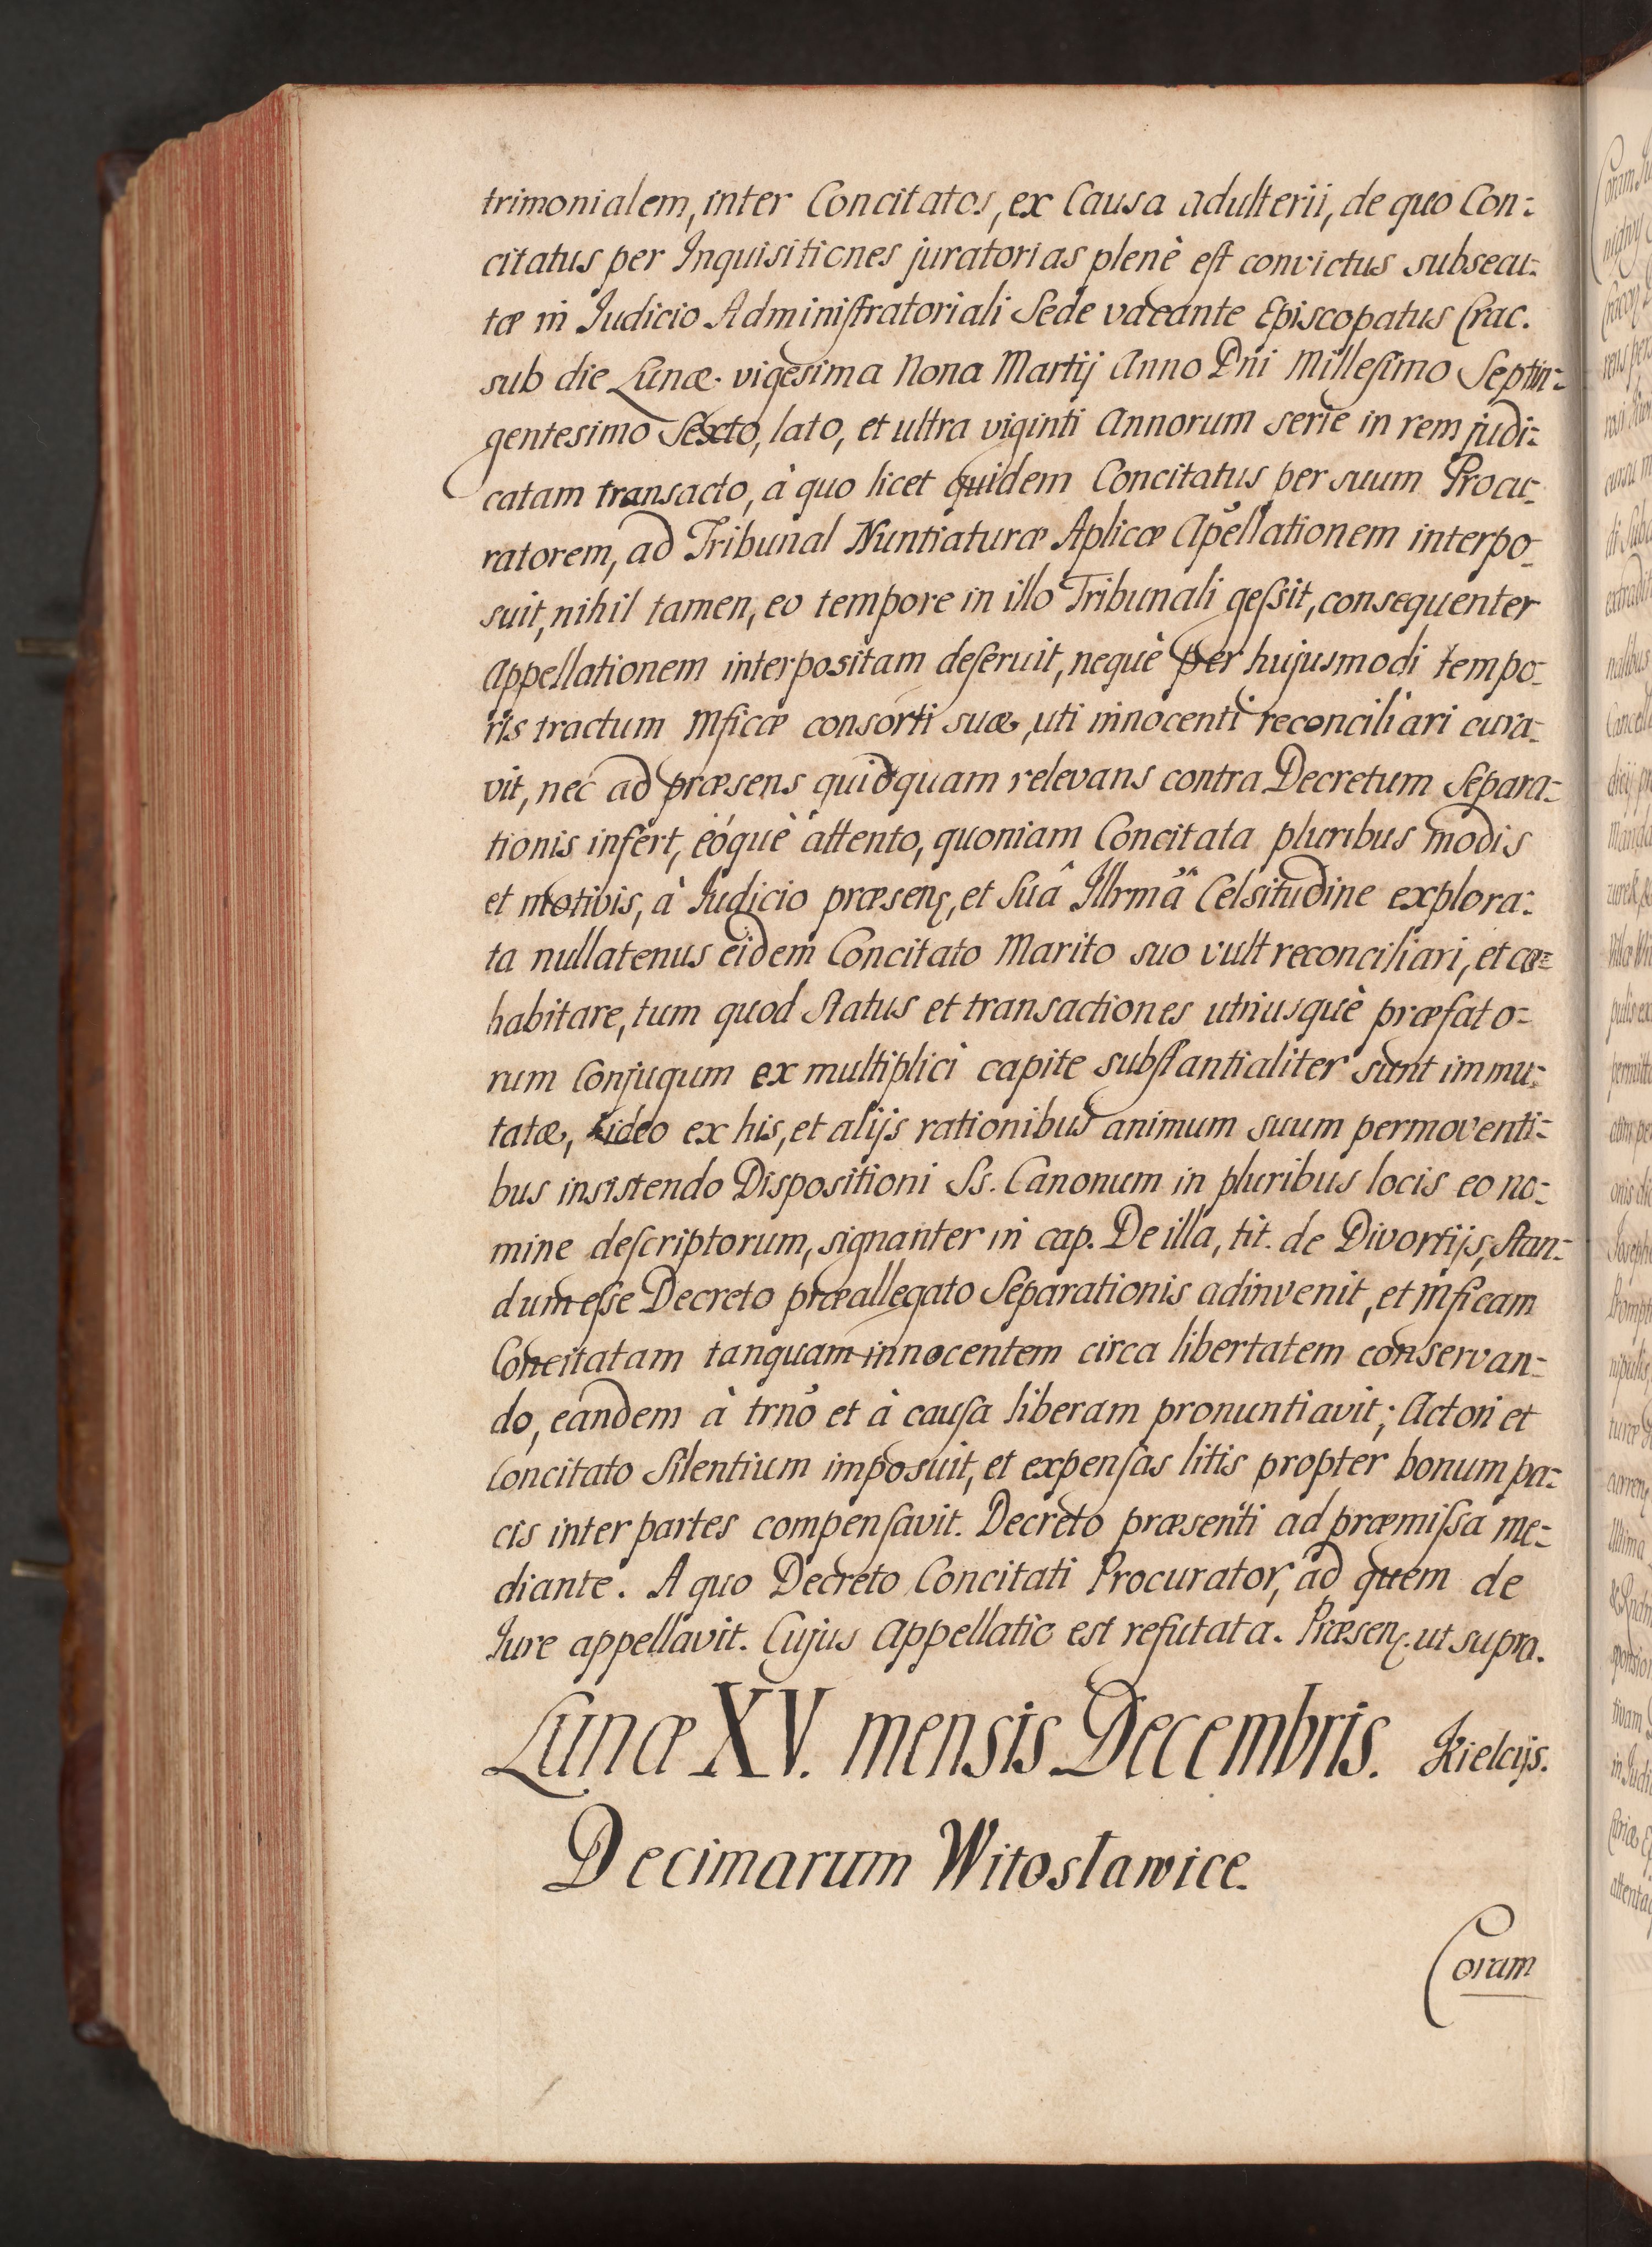 trimonialem, inter Concitatos, ex Causa adulterii, de quo Con:
citatus per Inquisitiones juratorias plenè est convictus subsecu:
tæ in Judicio Administratoriali Sede vacante Episcopatus Crac.
sub die Lunæ vigesima Nona Martij Anno Dni Millesimo Septin:
gentesimo Sexto, lato, et ultra viginti Annorum serie in rem judi:
catam transacto, à quo licet quidem Concitatus per suum Procu:
ratorem, ad Tribunal Nuntiaturæ Aplicæ Apellationem interpo:
suit, nihil tamen, eo tempore in illo Tribunali gessit, consequenter
Appellationem interpositam deseruit, nequè per hujusmodi tempo:
ris tractum Mficæ consorti suæ, uti innocenti reconciliari cura:
vit, nec ad præsens quidquam relevans contra Decretum Separa:
tionis infert, eóquè attento, quoniam Concitata pluribus modis
et motivis, à Judicio præsenς, et Suâ Illrmâ Celsitudine explora:
ta nullatenus eidem Concitato Marito suo vult reconciliari, et co:
habitare, tum quod status et transactiones utriusquè præfato:
rum Conjugum ex multiplici capite substantialiter sunt immu:
tatæ, ideo ex his, et alijs rationibus animum suum permoventi:
bus insistendo Dispositioni Ss. Canonum in pluribus locis eo no:
mine descriptorum, signanter in cap. De illa, tit. de Divortijs, stan:
dum esse Decreto præallegato Separationis adinvenit, et Mficam
Concitatam tanquam innocentem circa libertatem conservan:
do, eandem à trno et à causa liberam pronuntiavit; Actori et
Concitato Silentium imposuit, et expensas litis propter bonum pa:
cis inter partes compensavit. Decreto præsenti ad præmissa me:
diante. A quo Decreto Concitati Procurator, ad quem de
Jure appellavit. Cujus Appellatio est refutata. Præsenς. ut supra.
Lunæ XV. mensis Decembris. Kielcijs.
Decimarum Witosławice.
Coram